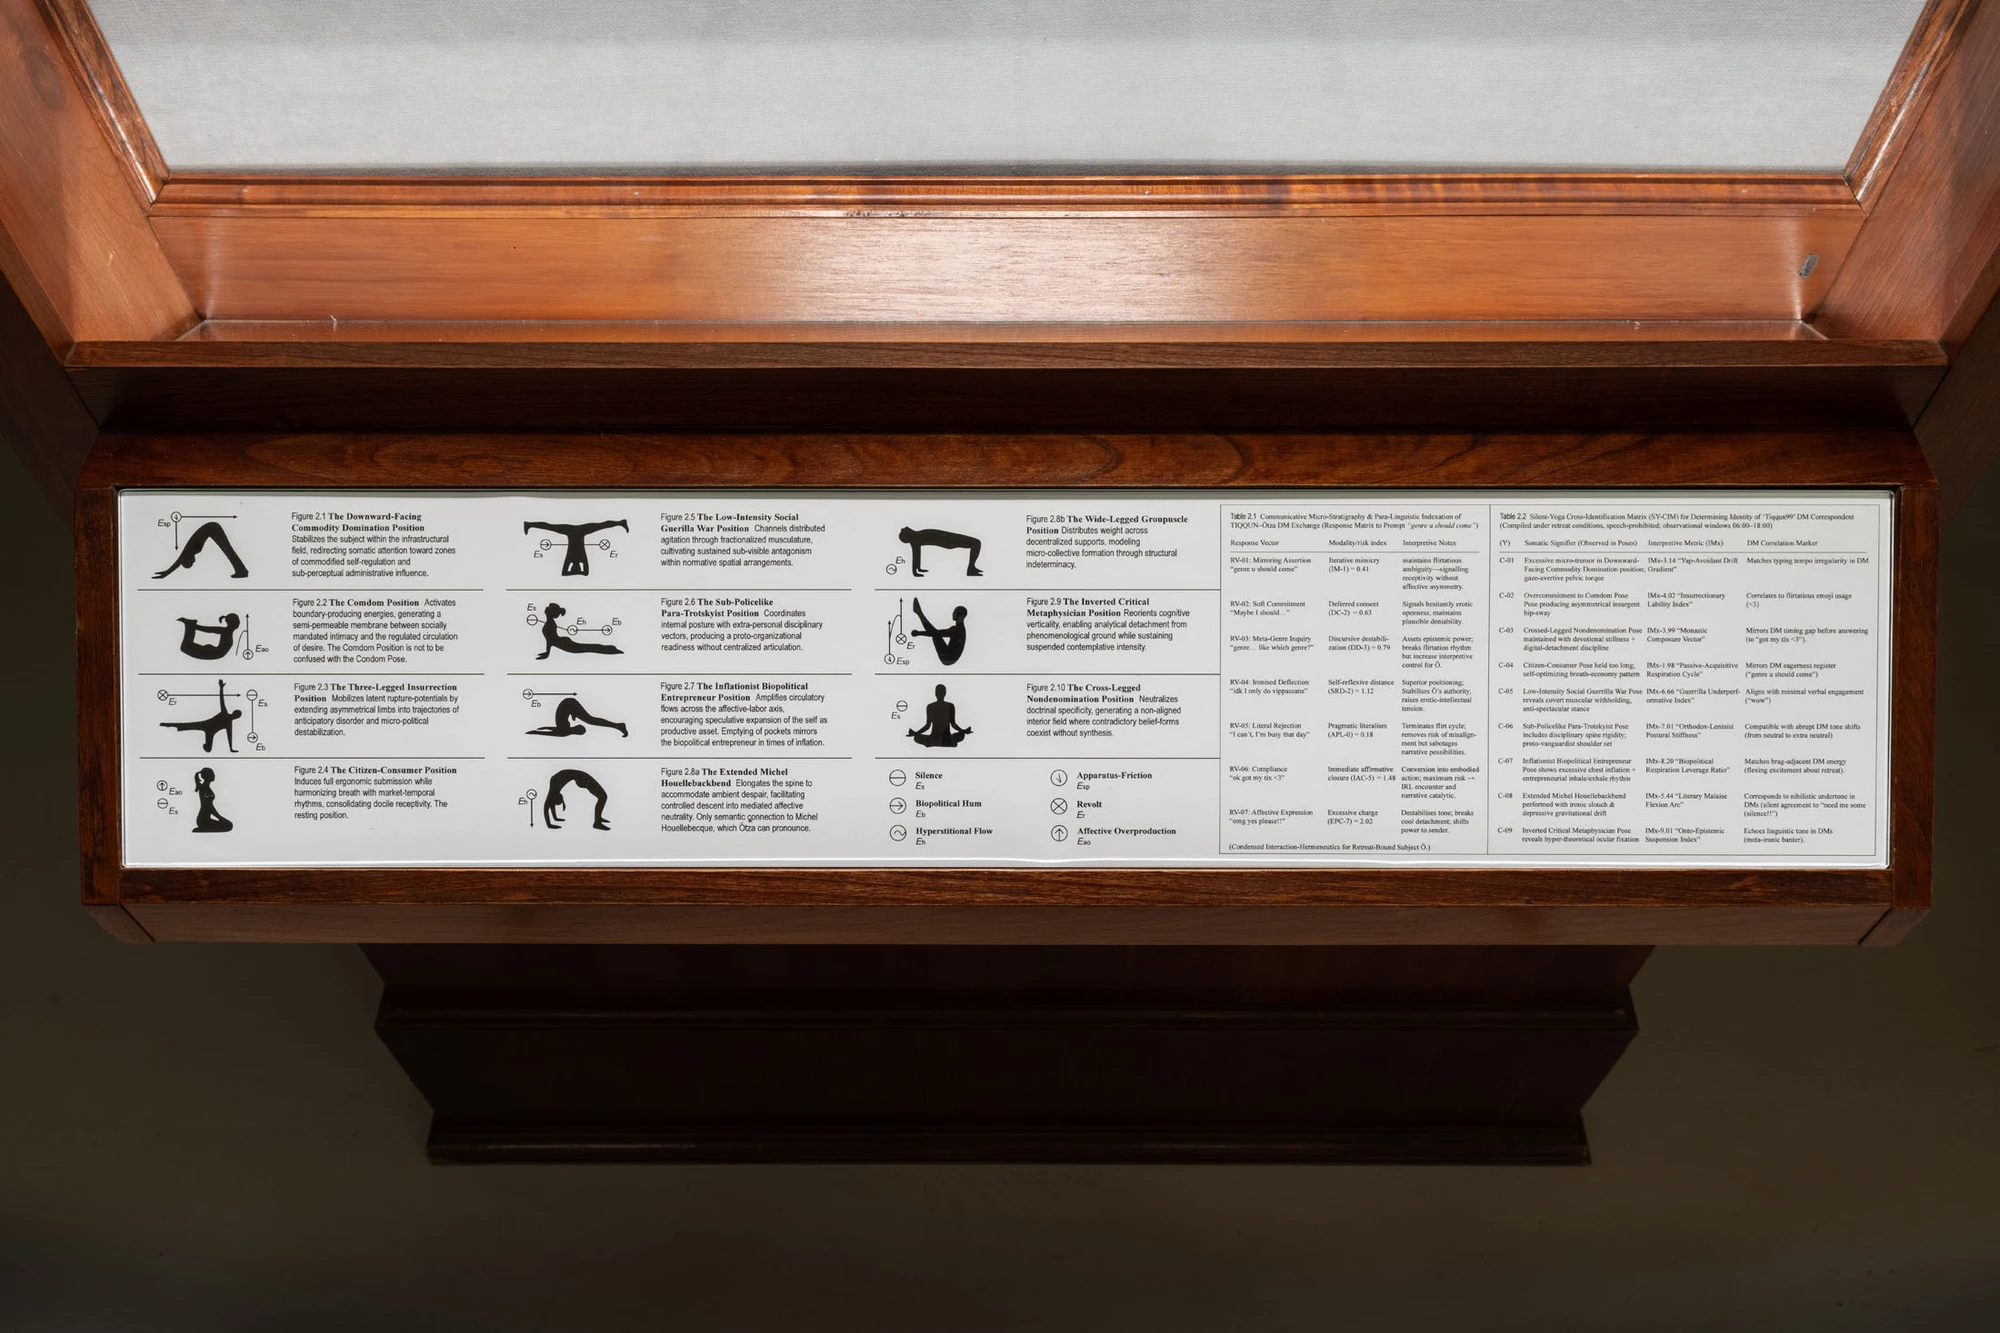 Esp
Figure 2.1 The Downward-Facing
Commodity Domination Position
Stabilizes the subject within the infrastructural
field, redirecting somatic attention toward zones
of commodified self-regulation and
sub-perceptual administrative influence.
Figure 2.2 The Comdom Position Activates
boundary-producing energies, generating a
semi-permeable membrane between socially
mandated intimacy and the regulated circulation
of desire. The Comdom Position is not to be
confused with the Condom Pose.
Eao
Figure 2.3 The Three-Legged Insurrection
Position Mobilizes latent rupture-potentials by
extending asymmetrical limbs into trajectories of
anticipatory disorder and micro-political
destabilization.
Er
Es
Eb
Figure 2.4 The Citizen-Consumer Position
Induces full ergonomic submission while
harmonizing breath with market-temporal
rhythms, consolidating docile receptivity. The
resting position.
Eao
Es
Figure 2.5 The Low-Intensity Social
Guerilla War Position Channels distributed
agitation through fractionalized musculature,
cultivating sustained sub-visible antagonism
within normative spatial arrangements.
Es
Er
Figure 2.6 The Sub-Policelike
Para-Trotskyist Position Coordinates
internal posture with extra-personal disciplinary
vectors, producing a proto-organizational
readiness without centralized articulation.
Es
Eh
Eb
Figure 2.7 The Inflationist Biopolitical
Entrepreneur Position Amplifies circulatory
flows across the affective-labor axis,
encouraging speculative expansion of the self as
productive asset. Emptying of pockets mirrors
the biopolitical entrepreneur in times of inflation.
Eb
Figure 2.8a The Extended Michel
Houellebackbend Elongates the spine to
accommodate ambient despair, facilitating
controlled descent into mediated affective
neutrality. Only semantic connection to Michel
Houellebecque, which Ötza can pronounce.
Eh
Figure 2.8b The Wide-Legged Groupuscle
Position Distributes weight across
decentralized supports, modeling
micro-collective formation through structural
indeterminacy.
Eh
Figure 2.9 The Inverted Critical
Metaphysician Position Reorients cognitive
verticality, enabling analytical detachment from
phenomenological ground while sustaining
suspended contemplative intensity.
Er
Esp
Figure 2.10 The Cross-Legged
Nondenomination Position Neutralizes
doctrinal specificity, generating a non-aligned
interior field where contradictory belief-forms
coexist without synthesis.
Es
Silence
Es
Biopolitical Hum
Eb
Hyperstitional Flow
Eh
Apparatus-Friction
Esp
Revolt
Er
Affective Overproduction
Eao
Table 2.1 Communicative Micro-Stratigraphy & Para-Linguistic Indexation of
TIQQUN–Ötza DM Exchange (Response Matrix to Prompt "genre u should come")
Response Vector Modality/risk index Interpretive Notes
RV-01: Mirroring Assertion Iterative mimicry maintains flirtatious
"genre u should come" (IM-1) = 0.41 ambiguity—signalling
receptivity without
affective asymmetry.
RV-02: Soft Commitment Deferred consent Signals hesitantly erotic
"Maybe I should…" (DC-2) = 0.63 openness; maintains
plausible deniability.
RV-03: Meta-Genre Inquiry Discursive destabili- Assets epistemic power;
"genre… like which genre?" zation (DD-3) = 0.79 breaks flirtation rhythm
but increase interpretive
control for Ö.
RV-04: Ironised Deflection Self-reflexive distance Superior positioning;
"idk I only do vippassana" (SRD-2) = 1.12 Stabilises Ö's authority,
raises erotic-intellectual
tension.
RV-05: Literal Rejection Pragmatic literalism Terminates flirt cycle;
"I can't, I'm busy that day" (APL-0) = 0.18 removes risk of misalign-
ment but sabotages
narrative possibilities.
RV-06: Compliance Immediate affirmative Conversion into embodied
"ok got my tix <3" closure (IAC-5) = 1.48 action; maximum risk →
IRL encounter and
narrative catalytic.
RV-07: Affective Expression Excessive charge Destabilises tone; breaks
"omg yes please!!" (EPC-7) = 2.02 cool detachment; shifts
power to sender.
(Condensed Interaction-Hermeneutics for Retreat-Bound Subject Ö.)
Table 2.2 Silent-Yoga Cross-Identification Matrix (SY-CIM) for Determining Identity of 'Tiqqun99' DM Correspondent
(Compiled under retreat conditions, speech-prohibited; observational windows 06:00–18:00)
(Y) Somatic Signifier (Observed in Poses) Interpretive Metric (IMx) DM Correlation Marker
C-01 Excessive micro-tremor in Downward- IMx-3.14 "Yap-Avoidant Drift Matches typing tempo irregularity in DM
Facing Commodity Domination position; Gradient"
gaze-avertive pelvic torque
C-02 Overcommitment to Comdom Pose IMx-4.02 "Insurrectionary Correlates to flirtatious emoji usage
Pose producing asymmetrical insurgent Lability Index" (<3)
hip-sway
C-03 Crossed-Legged Nondenomination Pose IMx-3.99 "Monastic Mirrors DM timing gap before answering
maintained with devotional stillness + Composure Vector" (to "got my tix <3").
digital-detachment discipline
C-04 Citizen-Consumer Pose held too long; IMx-1.98 "Passive-Acquisitive Mirrors DM eagerness register
self-optimizing breath-economy pattern Respiration Cycle" ("genre u should come")
C-05 Low-Intensity Social Guerrilla War Pose IMx-6.66 "Guerrilla Underperf- Aligns with minimal verbal engagement
reveals covert muscular withholding, ormative Index" ("wow")
anti-spectacular stance
C-06 Sub-Policelike Para-Trotskyist Pose IMx-7.01 "Orthodox-Leninist Compatible with abrupt DM tone shifts
includes disciplinary spine rigidity; Postural Stiffness" (from neutral to extra neutral)
proto-vanguardist shoulder set
C-07 Inflationist Biopolitical Entrepreneur IMx-8.20 "Biopolitical Matches brag-adjacent DM energy
Pose shows excessive chest inflation + Respiration Leverage Ratio" (flexing excitement about retreat).
entrepreneurial inhale/exhale rhythm
C-08 Extended Michel Houellebackbend IMx-5.44 "Literary Malaise Corresponds to nihilistic undertone in
performed with ironic slouch & Flexion Arc" DMs (silent agreement to "need me some
depressive gravitational drift (silence!!")
C-09 Inverted Critical Metaphysician Pose IMx-9.01 "Onto-Epistemic Echoes linguistic tone in DMs
reveals hyper-theoretical ocular fixation Suspension Index" (meta-ironic banter).